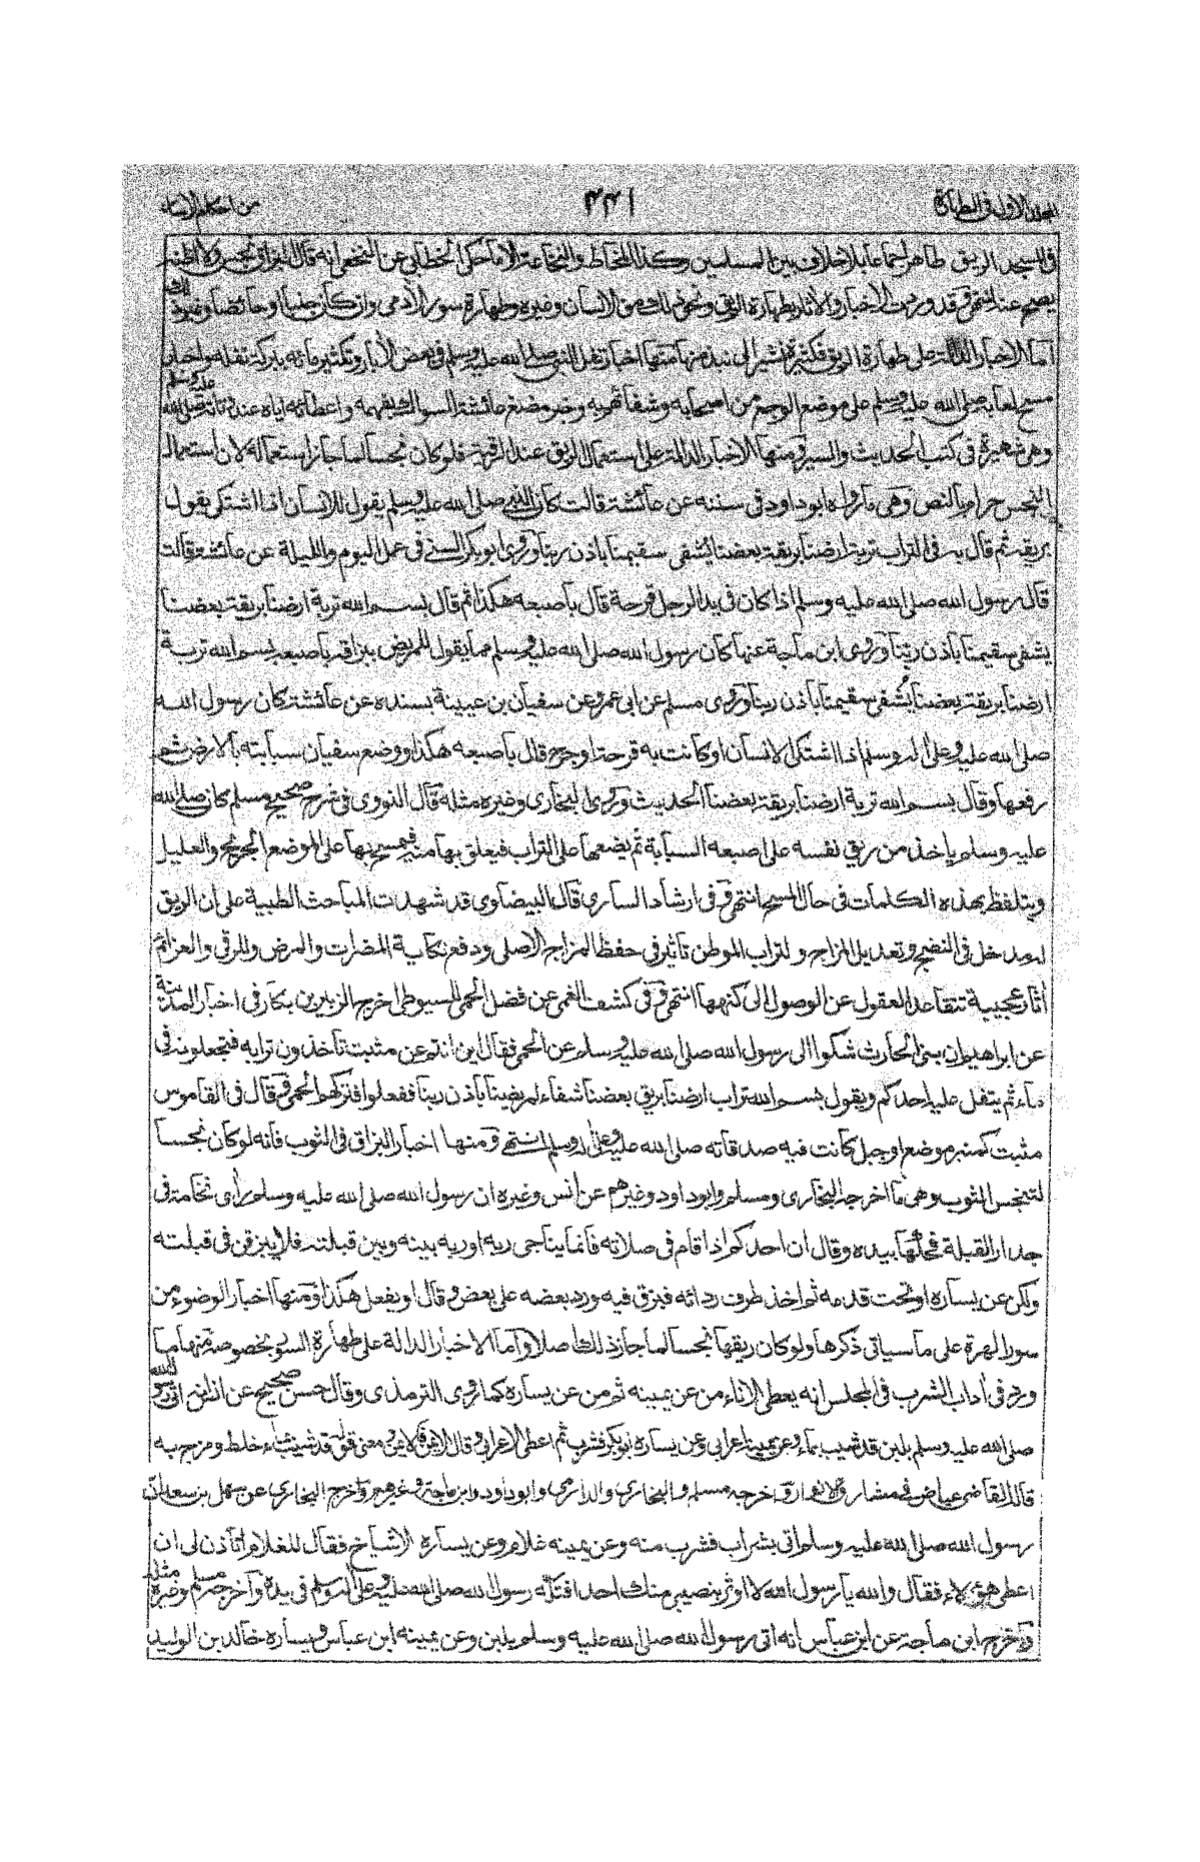 المجلد الاول فى الطهارة ٢٢١ من احكام الاسار
فى المسجد الريق طاهر اجماعا بلا خلاف بين المسلمين وكذا المخاط والنخاعة الا ما حكى الخطابى عن النخعى انه قال البزاق نجس ولا اظنه
يصح عنه انتهى وقد وردت الاخبار والاثار بطهارة الريق ونحو ذلك من الانسان وغيره وطهارة سور الآدمى وان كان جنبا او حائضا
اما الاخبار الدالة على طهارة الريق فكثيرة نشير الى نبذ منها منها اخبار تفل النبى صلى الله عليه وسلم فى بعض الآبار وتكثير مائه ببركة تفله واخبار
مسح لعابه صلى الله عليه وسلم على موضع الوجع من اصحابه وشفائهم به وخبر مضغ عائشة السواك بفمه واعطائه اياه عند وفاته صلى الله عليه وسلم
وهى شهيرة فى كتب الحديث والسير ومنها الاخبار الدالة على استعمال الريق عند الرقية فلو كان نجسا لما جاز استعماله لان استعمال
النجس حرام بالنص وهى ما رواه ابو داود فى سننه عن عائشة قالت كان النبى صلى الله عليه وسلم يقول للانسان اذا اشتكى يقول
بريقه ثم قال به فى التراب تربة ارضنا بريقة بعضنا يشفى سقيمنا باذن ربنا وروى ابو بكر السنى فى عمل اليوم والليلة عن عائشة قالت
قال رسول الله صلى الله عليه وسلم اذا كان فى يد الرجل قرحة قال باصبعه هكذا ثم قال بسم الله تربة ارضنا بريقة بعضنا
يشفى سقيمنا باذن ربنا وروى ابن ماجة عنها كان رسول الله صلى الله عليه وسلم مما يقول للمريض ببزاقه باصبعه بسم الله تربة
ارضنا بريقة بعضنا يشفى سقيمنا باذن ربنا وروى مسلم عن ابى عمر وعن سفيان بن عيينة بسنده عن عائشة كان رسول الله
صلى الله عليه وعلى اله وسلم اذا اشتكى الانسان او كانت به قرحة او جرح قال باصبعه هكذا ووضع سفيان سبابته بالارض ثم
رفعها وقال بسم الله تربة ارضنا بريقة بعضنا الحديث وروى البخارى وغيره مثله قال النووى فى شرح صحيح مسلم كان صلى الله
عليه وسلم ياخذ من ريق نفسه على اصبعه السبابة ثم يضعها على التراب فيعلق بها منه فيمسح بها على الموضع الجريح والعليل
ويتلفظ بهذه الكلمات فى حال المسح انتهى وفى ارشاد السارى قال البيضاوى قد شهدت المباحث الطبية على ان الريق
له مدخل فى النضج وتعديل المزاج ولتراب الموطن تاثير فى حفظ المزاج الاصلى ودفع نكاية المضرات والمرض وللرقى والعزائم
آثار عجيبة تتقاعد العقول عن الوصول الى كنهها انتهى وفى كشف الغمى عن فضل الحمى للسيوطى اخرج الزبير بن بكار فى اخبار المدينة
عن ابراهيم ان بنى الحارث شكوا الى رسول الله صلى الله عليه وسلم عن الحمى فقال اين انتم عن مثبت تاخذون ترابه فتجعلونه فى
ماء ثم يتفل عليه احدكم ويقول بسم الله تراب ارضنا بريق بعضنا شفاء لمريضنا باذن ربنا ففعلوا فتركتهم الحمى قال فى القاموس
مثبت كمنبر موضع او جبل كانت فيه صدقاته صلى الله عليه وعلى اله وسلم انتهى ومنها اخبار البزاق فى الثوب فانه لو كان نجسا
لتنجس الثوب وهى ما اخرجه البخارى ومسلم وابو داود وغيرهم عن انس وغيره ان رسول الله صلى الله عليه وسلم راى نخامة فى
جدار القبلة فحكها بيده وقال ان احدكم اذا قام فى صلاته فانما يناجى ربه او ربه بينه وبين قبلته فلا يبزقن فى قبلته
ولكن عن يساره او تحت قدمه ثم اخذ طرف ردائه فبزق فيه ورد بعضه على بعض وقال او يفعل هكذا ومنها اخبار الوضوء من
سور الهرة على ما سياتى ذكرها ولو كان ريقها نجسا لما جاز ذلك اصلا واما الاخبار الدالة على طهارة السور بخصوصه منها ما
ورد فى آداب الشرب فى المجلس انه يعطى الاناء من عن يمينه ثم من عن يساره كما روى الترمذى وقال حسن صحيح عن انس انه اتى رسول الله
صلى الله عليه وسلم بلبن قد شيب بماء وعن يمينه اعرابى وعن يساره ابو بكر فشرب ثم اعطى الاعرابى وقال الايمن فالايمن ومعنى قوله قد شيب بماء خلط ومزج به
قاله القاضى عياض فى مشارق الانوار واخرجه مسلم والبخارى والدارمى وابو داود وابن ماجة وغيرهم واخرج البخارى عن سهل بن سعد ان
رسول الله صلى الله عليه وسلم اتى بشراب فشرب منه وعن يمينه غلام وعن يساره الاشياخ فقال للغلام اتاذن لى ان
اعطى هؤلاء فقال والله يا رسول الله لا اوثر بنصيبى منك احدا فتله رسول الله صلى الله عليه وعلى اله وسلم فى يده واخرج مسلم وغيره مثله
واخرج ابن ماجة عن ابن عباس انه اتى رسول الله صلى الله عليه وسلم بلبن وعن يمينه ابن عباس ويساره خالد بن الوليد